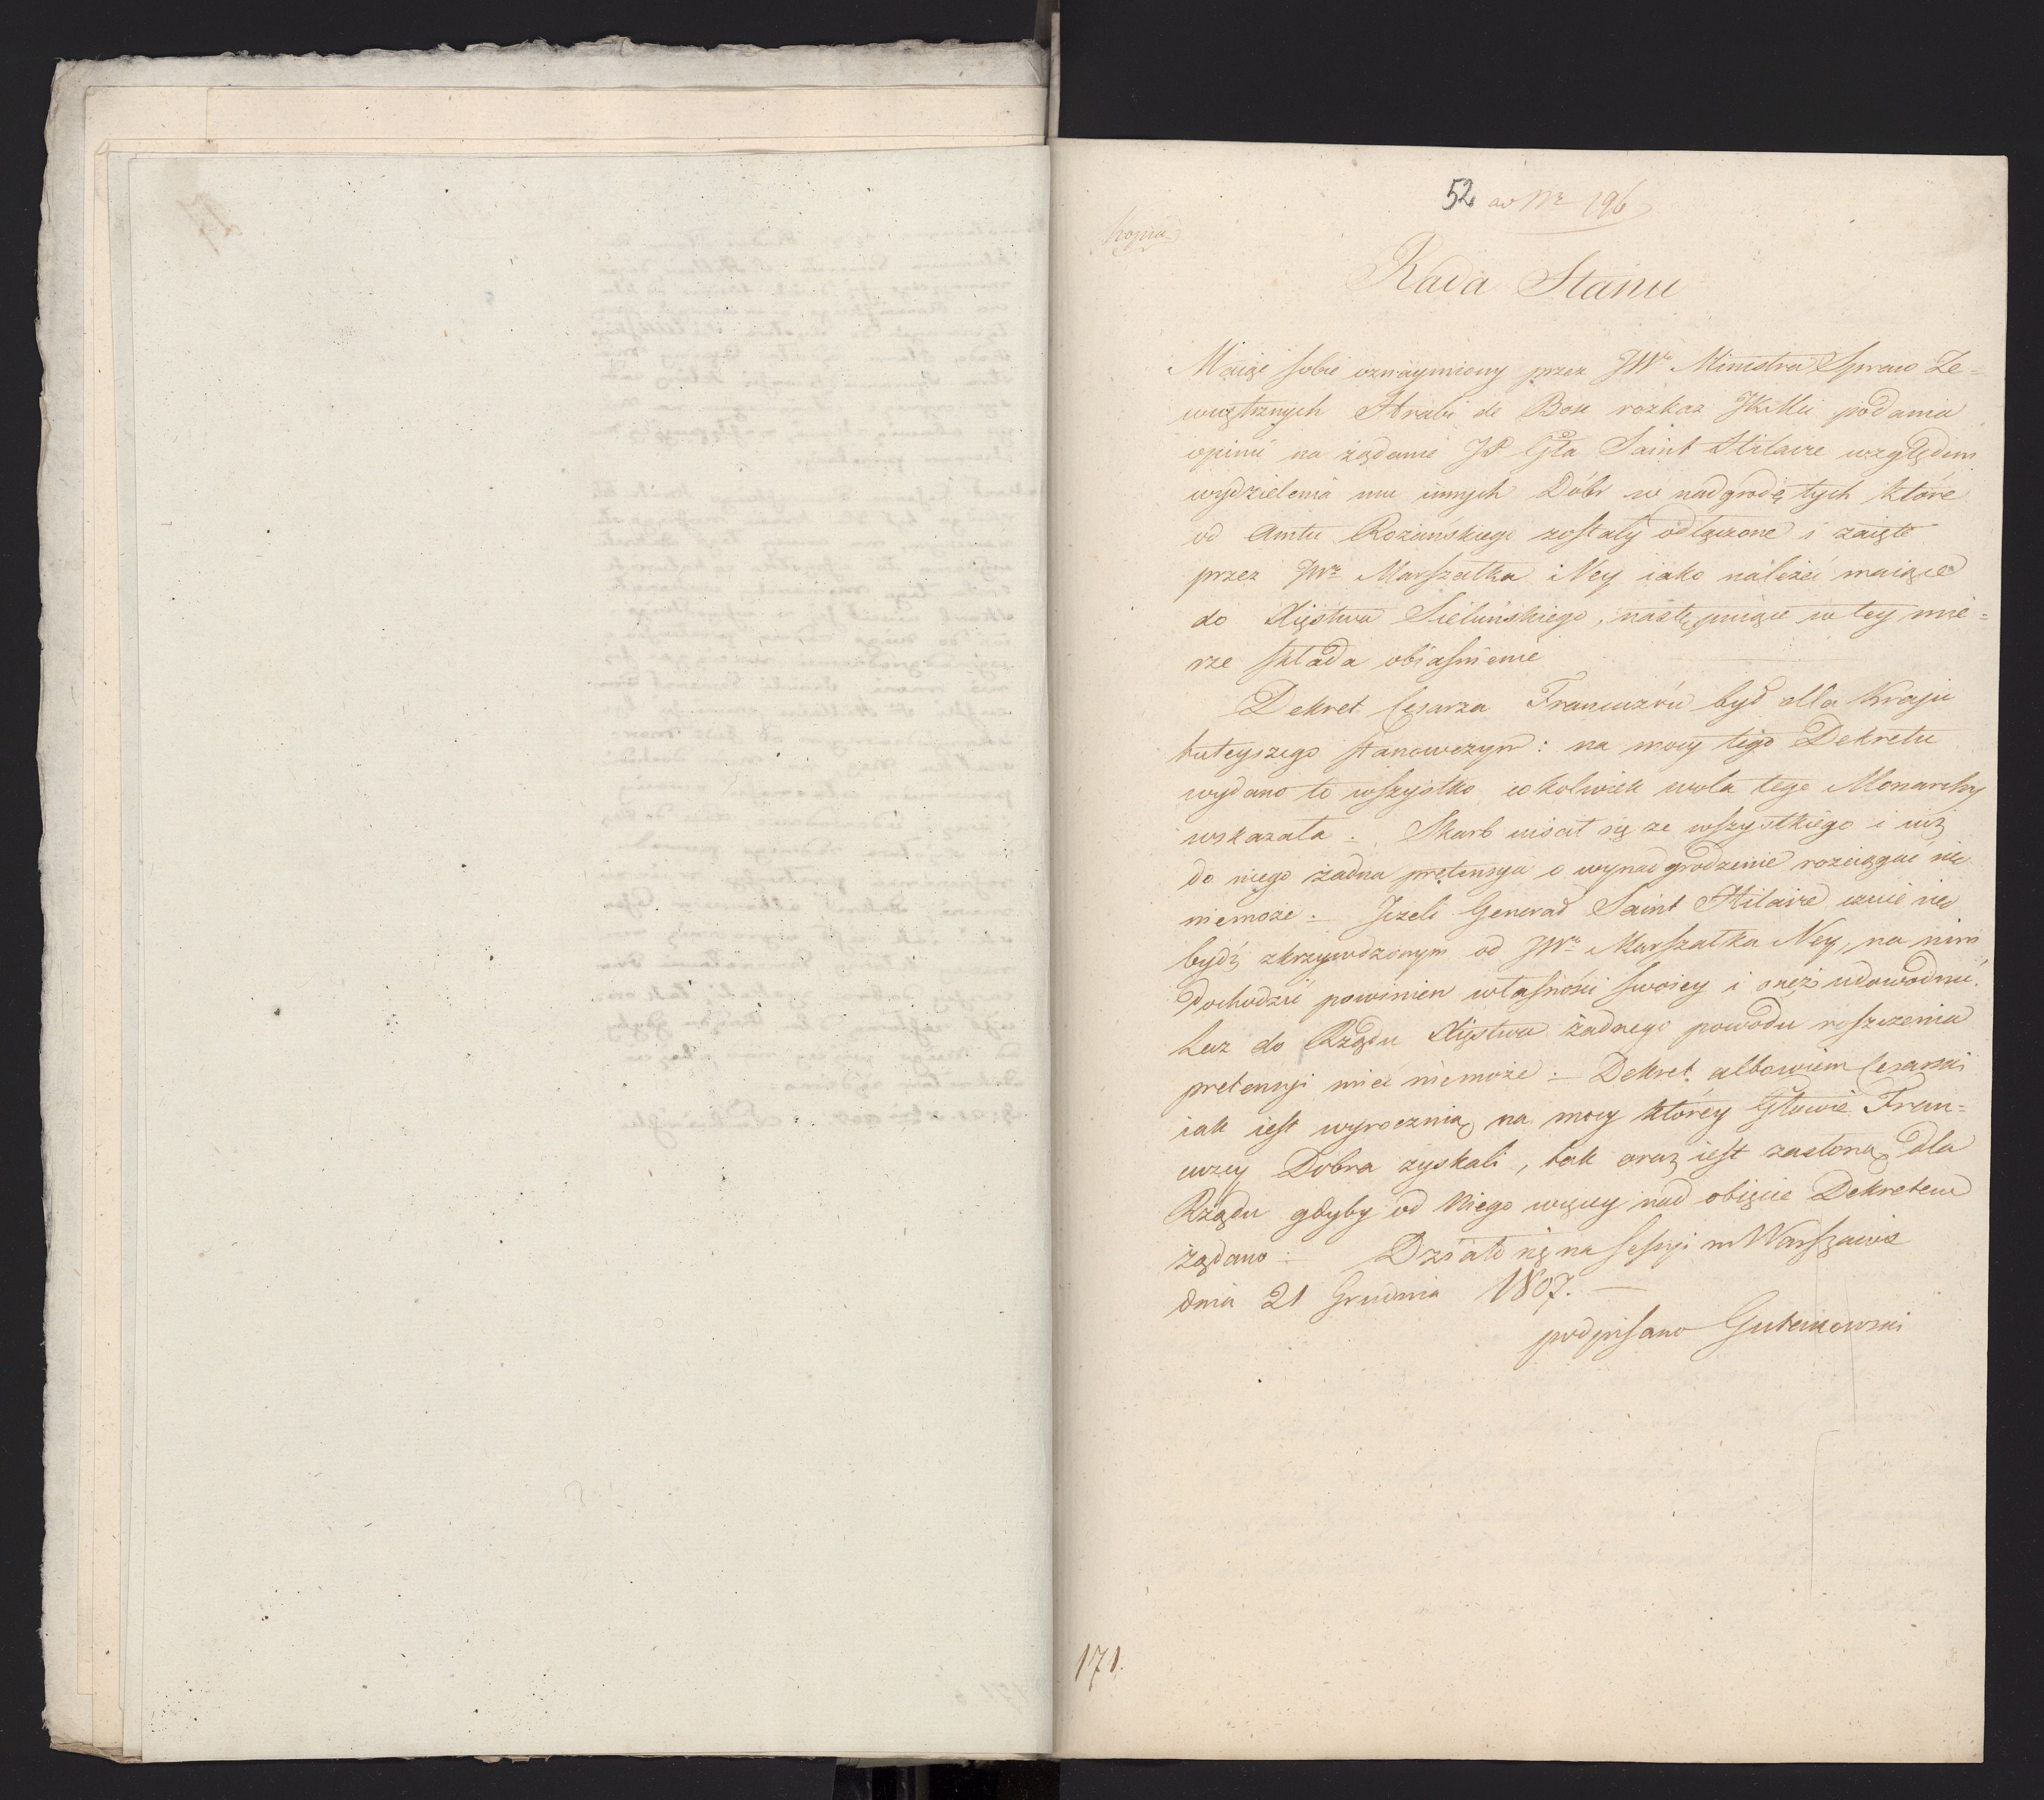 52 ad Nr 196
Kopia
Rada Stanu
Maiąc sobie oznaymiony przez JWo Ministra Spraw Ze=
wnętrznych Hrabi de Bose rozkaz JKMci podania
opinii na żądanie JP Gła Saint Hilaire względem
wydzielenia mu innych Dóbr w nadgrodę tych które
od Amtu Rożańskiego zostały odłączone i zaięte
przez JWo Marszałka Ney iako należeć maiące
do Xięstwa Sieluńskiego, następuiące w tey mie=
rze składa obiaśnienie
Dekret Cesarza Francuzów był dla Kraju
tuteyszego stanowczym: na mocy tego Dekretu
wydano to wszystko cokolwiek wola tego Monarchy
wskazała. Skarb uiścił się ze wszystkiego i iuż
do niego żadna pretensya o wynadgrodzenie rozciągać się
niemoże. – Jeżeli Generał Saint Hilaire czuie się
bydź zkrzywdzonym od JWo Marszałka Ney, na nim
dochodzić powinien własności swoiey i oneż udowodnić.
Lecz do Rządu Xięstwa żadnego powodu roszczenia
pretensyi mieć niemoże. – Dekret albowiem Cesarski
iak iest wyrocznią na mocy którey Głowie Fran=
cuzcy Dobra zyskali, tak oraz iest zasłoną dla
Rządu gdyby od Niego więcey nad obięcie Dekretem
żądano. – Działo się na Sessyi w Warszawie
dnia 21 Grudnia 1807. –
podpisano Gutakowski
171.